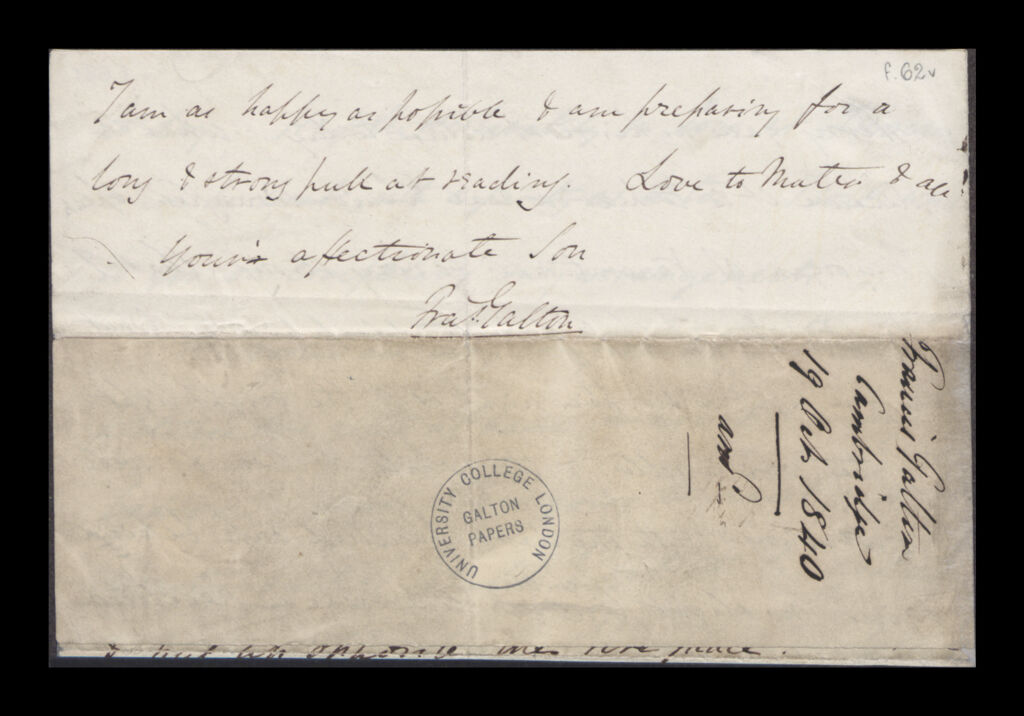 f.62v
I am as happy as possible & am preparing for a
long & strong pull at reading. Love to Mater & all
Your's affectionate Son
Fras Galton
Francis Galton
Cambridge
19 Oct. 1840
ansd
UNIVERSITY COLLEGE LONDON
GALTON
PAPERS
opposite